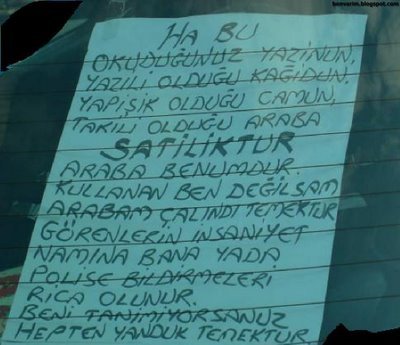 benverim.blogspot.com
HA BU
OKUDUĞUNUZ YAZİNUN,
YAZILI OLDUĞU KAĞIDUN,
YAPIŞIK OLDUĞU CAMUN,
TAKILI OLDUĞU ARABA
SATILIKTUR
ARABA BENUMDUR.
KULLANAN BEN DEĞİLSAM
ARABAM ÇALINDI TEMEKTUR
GÖRENLERİN İNSANİYET
NAMINA BANA YADA
POLİSE BİLDİRMELERİ
RİCA OLUNUR.
BENİ TANIMIYORSANUZ
HEPTEN YANDUK TEMEKTUR